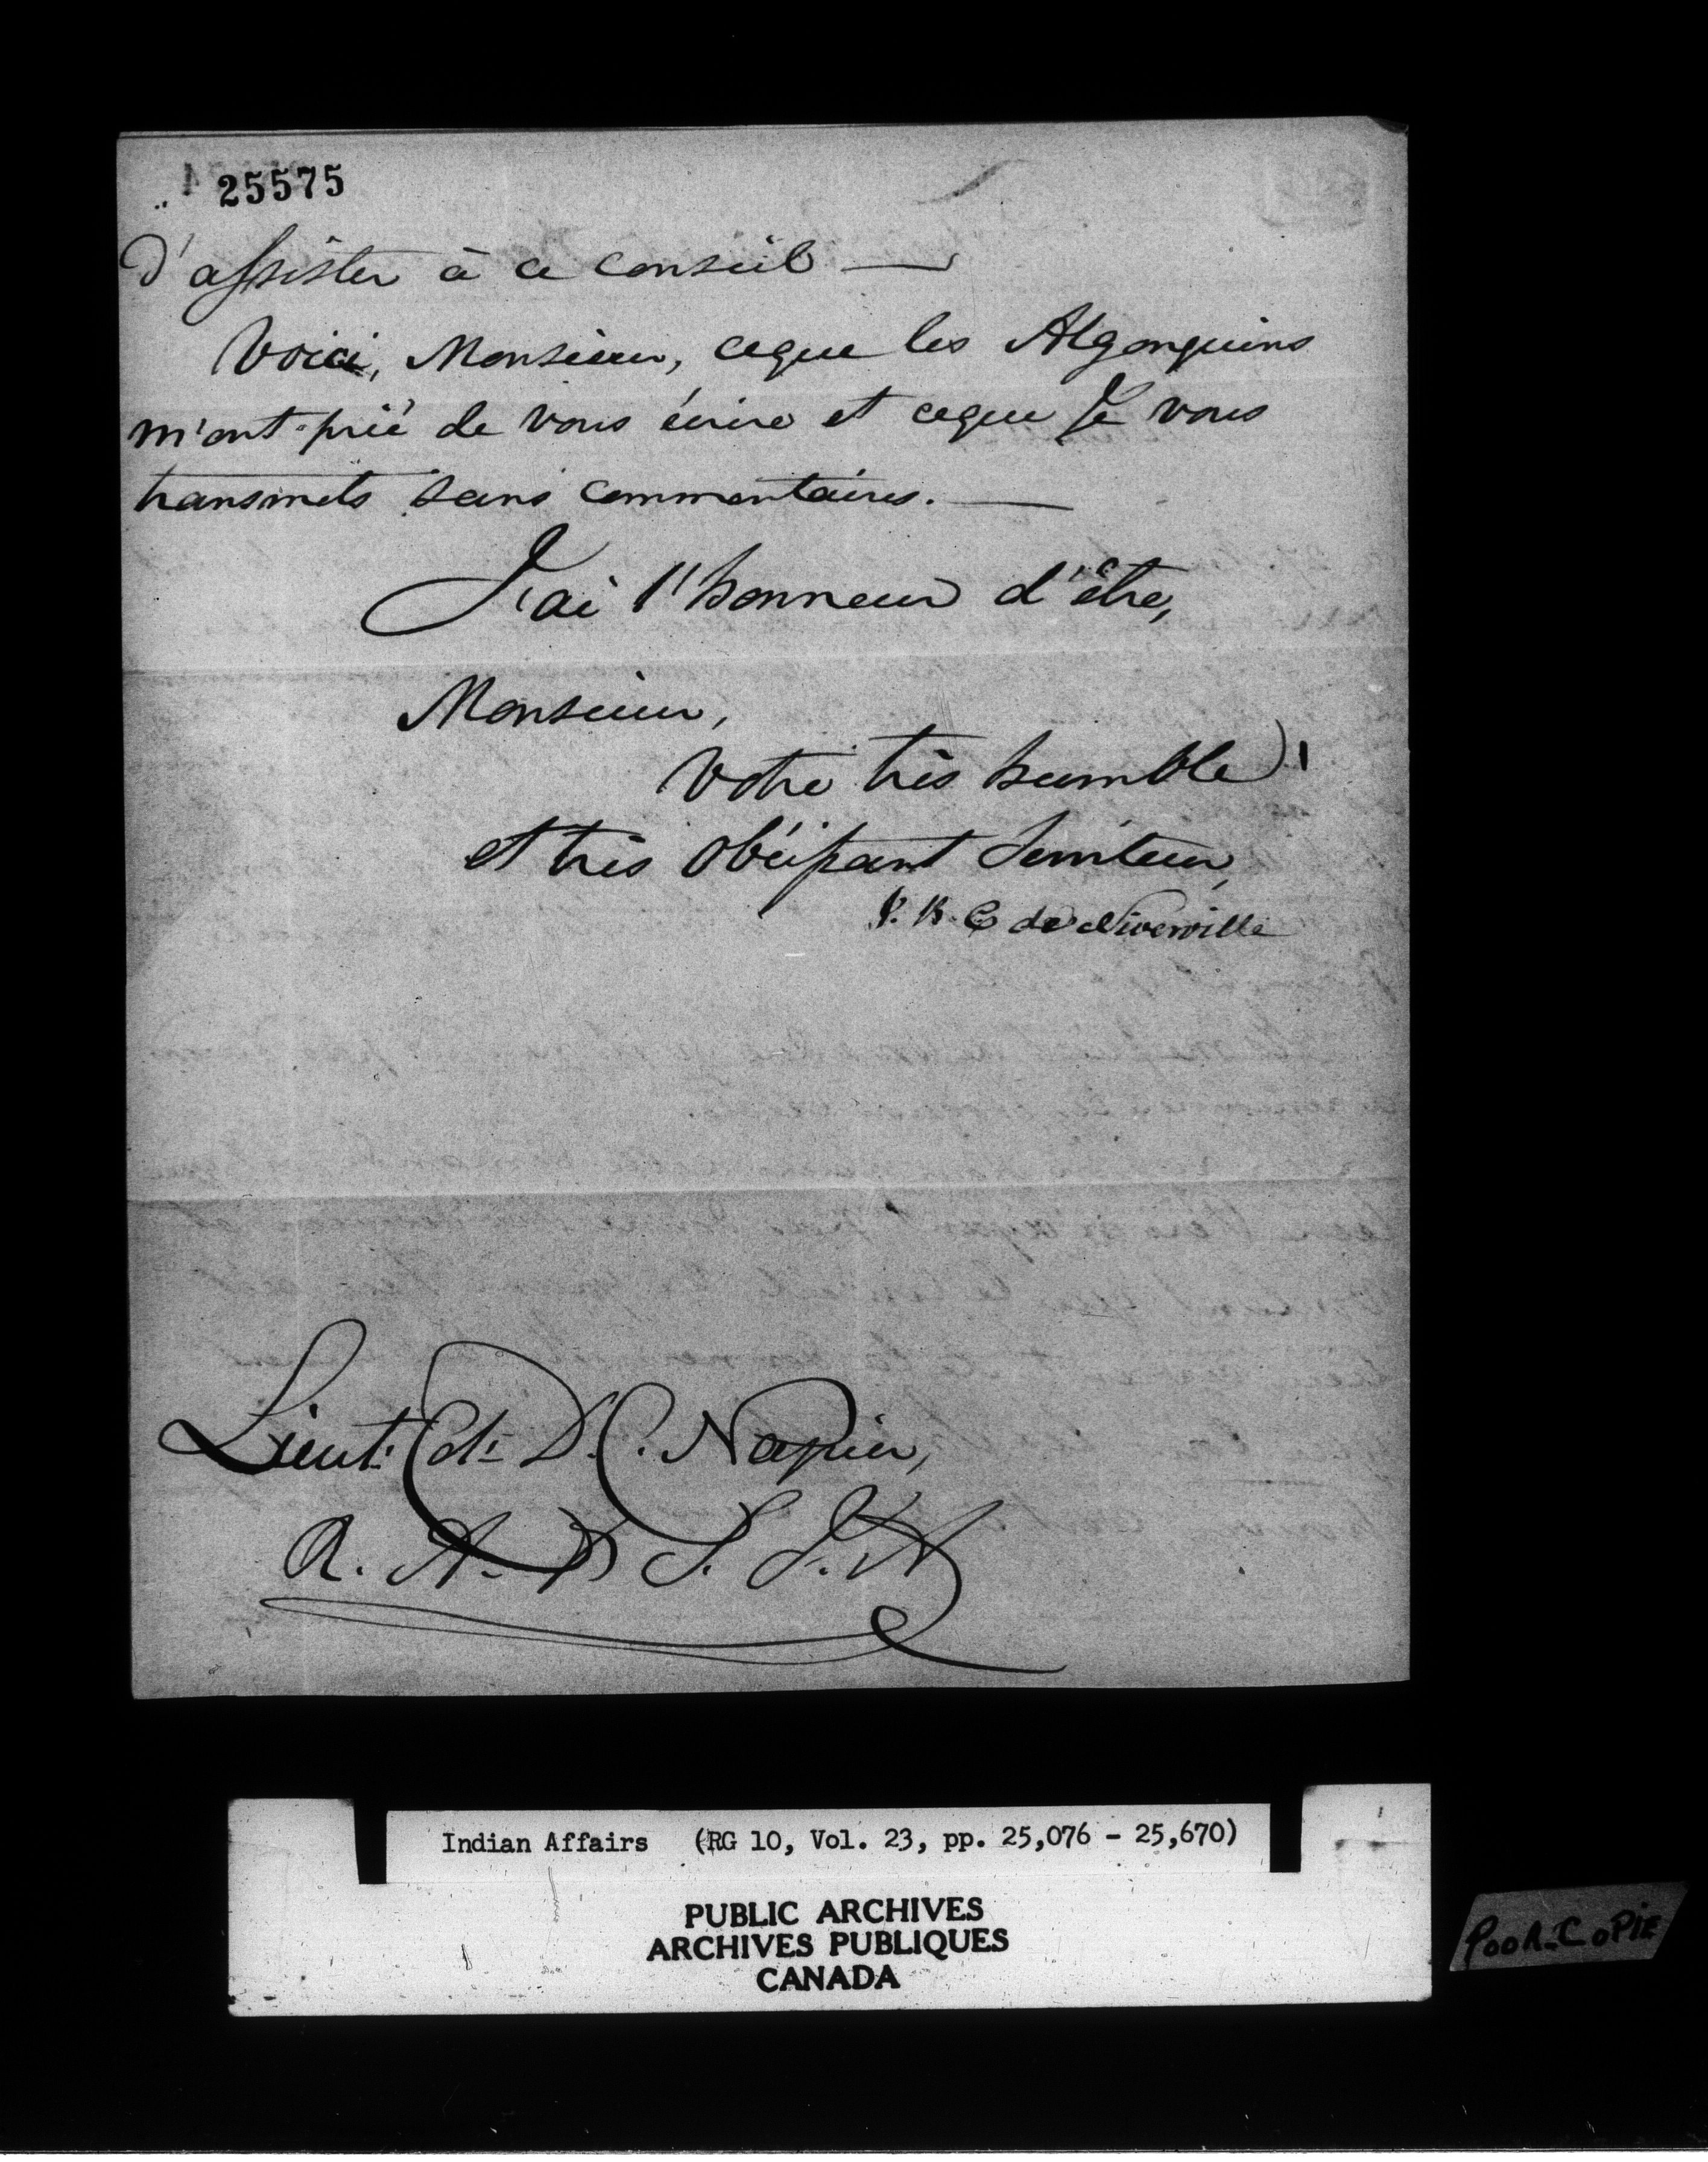 25575
d'assister à ce conseil —
Voici, Monsieur, ceque les Algonquins
m'ont prié de vous écrire et ceque Je vous
transmets sans commentaires. —
J'ai l'honneur d'être,
Monsieur,
Votre très humble
et très Obéissant Serviteur,
de Niverville
Lieut. Col. D. C. Napier,
A. S. I. A
Indian Affairs (RG 10, Vol. 23, pp. 25,076 - 25,670)
PUBLIC ARCHIVES
ARCHIVES PUBLIQUES
CANADA
POOR-COPIE